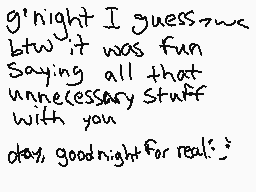 g'night I guess >w<
btw it was fun
Saying all that
unnecessary stuff
with you
okay, good night for real :-)